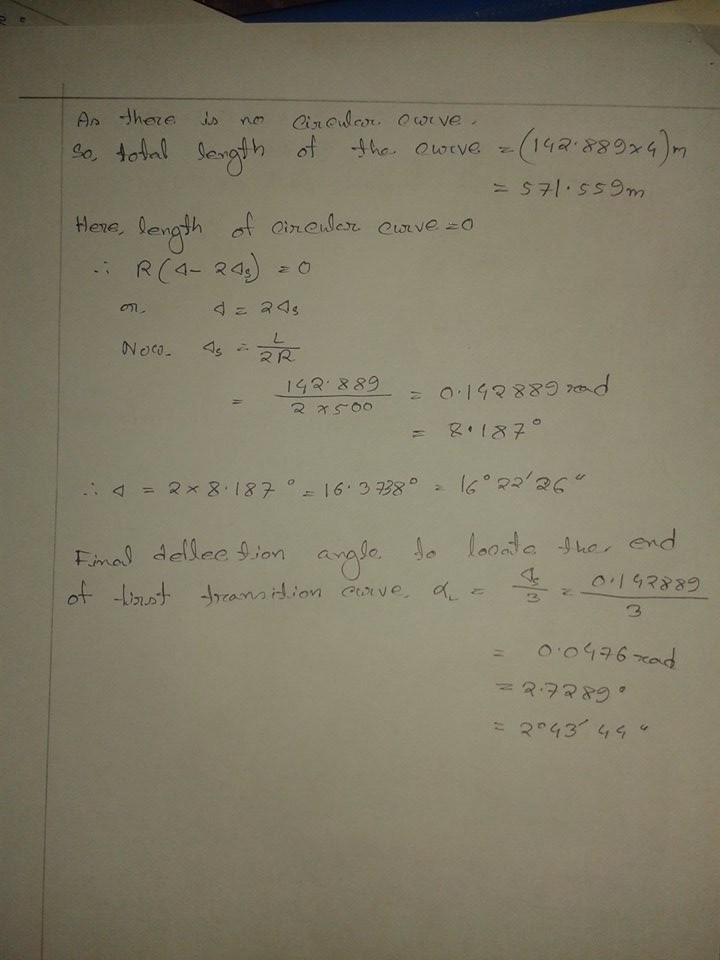 As there is no circular curve.
So, total length of the curve = (142.889×4)m
= 571.559m
Here, length of circular curve = 0
∴ R(Δ - 2Δs) = 0
or. Δ = 2Δs
Now. Δs = L/2R
= 142.889/2×500 = 0.142889 rad
= 8.187°
∴ Δ = 2×8.187° = 16.3738° = 16°22'26"
Final deflection angle to locate the end
of first transition curve, αL = Δs/3 = 0.142889/3
= 0.0476 rad
= 2.7289°
= 2°43'44"